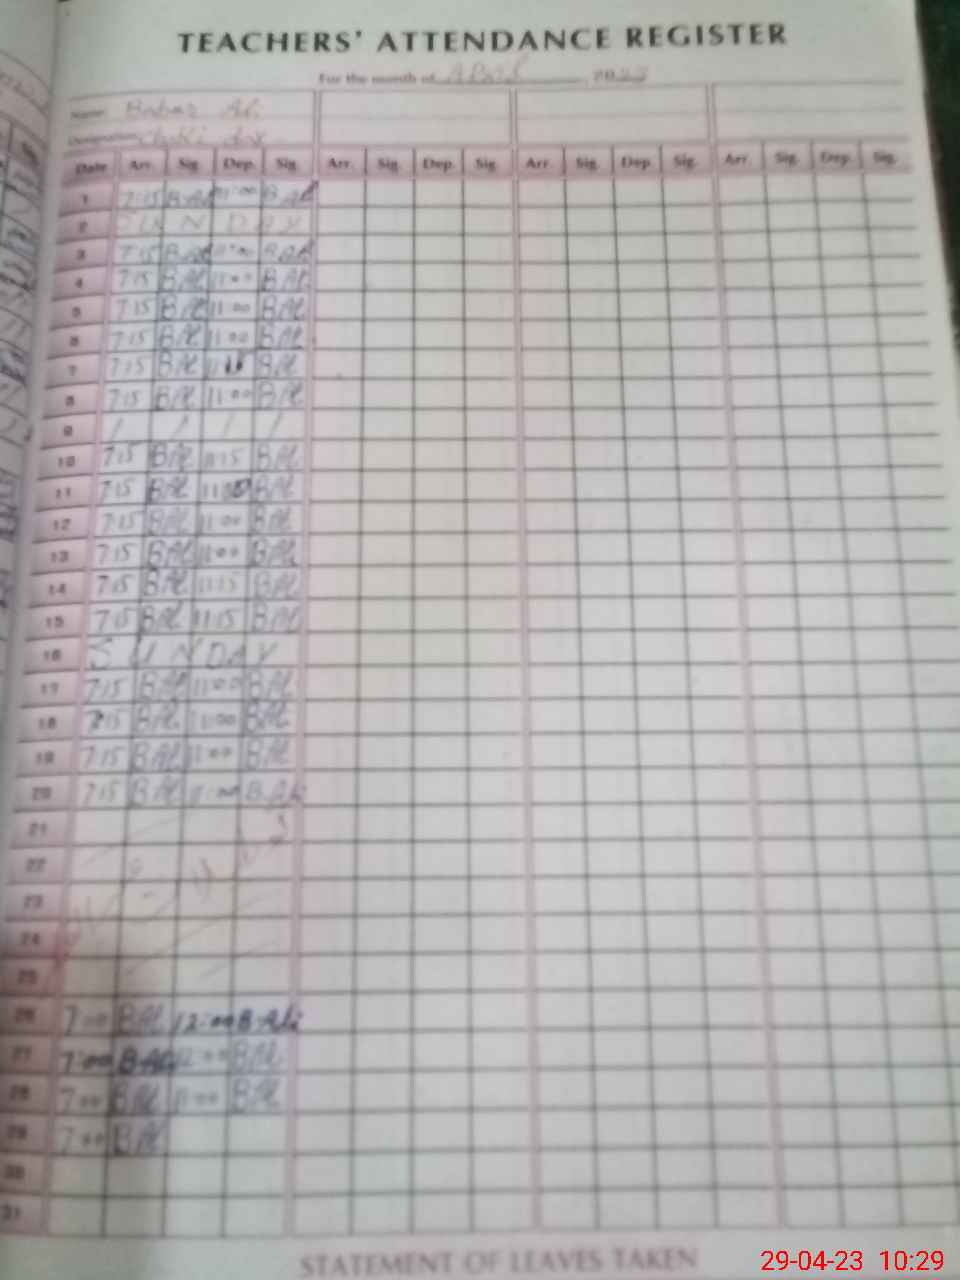 TEACHERS' ATTENDANCE REGISTER
For the month of April 2023
Name Babar Ali
Designation
Date Arr. Sig. Dep. Sig. Arr. Sig. Dep. Sig. Arr. Sig. Dep. Sig. Arr. Sig. Dep. Sig.
1 7:15 B.Ali 11:00 B.Ali
2 SUNDAY
3 7:15 B.Ali 11:00 B.Ali
4 7:15 B.Ali 11:00 B.Ali
5 7:15 B.Ali 11:00 B.Ali
6 7:15 B.Ali 11:00 B.Ali
7 7:15 B.Ali B.Ali
8 7:15 B.Ali 11:00 B.Ali
9 / / / /
10 7:15 B.Ali 11:15 B.Ali
11 7:15 B.Ali B.Ali
12 7:15 B.Ali 11:00 B.Ali
13 7:15 B.Ali 11:00 B.Ali
14 7:15 B.Ali 11:15 B.Ali
15 7:15 B.Ali 11:15 B.Ali
16 SUNDAY
17 7:15 B.Ali 11:00 B.Ali
18 7:15 B.Ali 11:00 B.Ali
19 7:15 B.Ali 11:00 B.Ali
20 7:15 B.Ali 11:00 B.Ali
21
22
23
24
25
26 7:00 B.Ali 12:00 B.Ali
27 7:00 B.Ali 12:00 B.Ali
28 7:00 B.Ali 11:00 B.Ali
29 7:00 B.Ali
30
31
STATEMENT OF LEAVES TAKEN
29-04-23 10:29